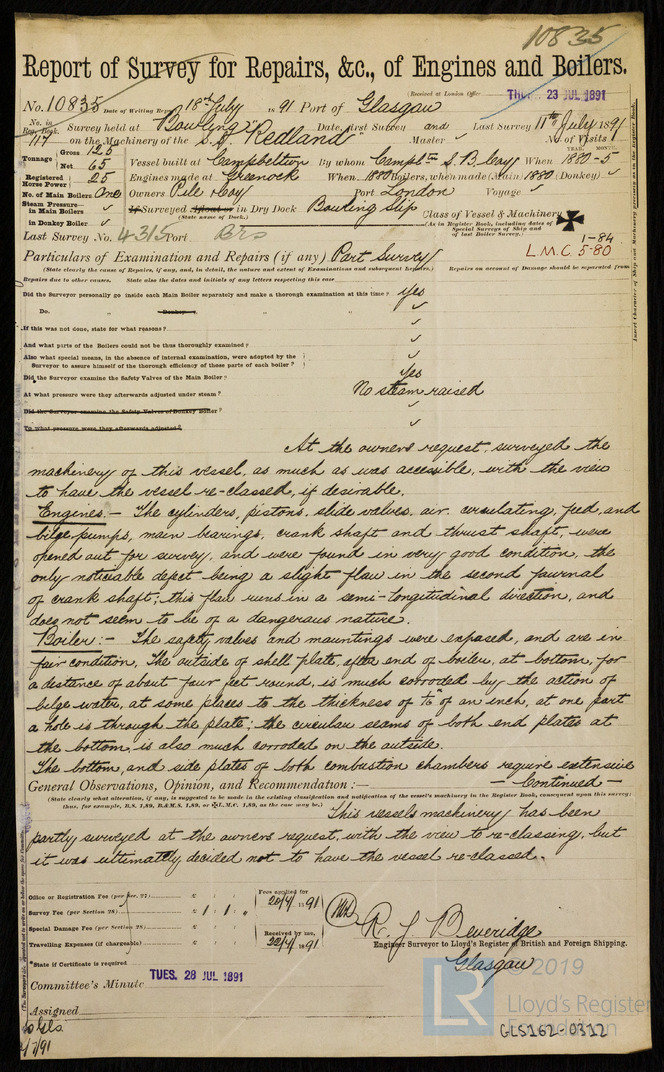 10835
Report of Survey for Repairs, &c., of Engines and Boilers.
Received at London Office THUR. 23 JUL 1891
No. 10835 Date of Writing Report 18th July 1891 Port of Glasgow
No. in Reg. Book. 117 Survey held at Bowling Date, first Survey and Last Survey 11th July 1891
on the Machinery of the S.S. "Redland" Master ✓ No. of Visits 9
Tonnage Gross 125 Net 65
Vessel built at Campbeltown By whom Campbn S. B. Coy When 1880-5
YEAR. MONTH.
Registered Horse Power 25 Engines made at Greenock When 1880 Boilers, when made (Main) 1880 (Donkey) ✓
No. of Main Boilers One Owners Pile & Coy Port London Voyage ✓
Steam Pressure in Main Boilers ✓ If Surveyed Afloat or in Dry Dock Bowling Slip
(State name of Dock.)
in Donkey Boiler ✓
Class of Vessel & Machinery
(As in Register Book, including dates of Special Surveys of Ship and of last Boiler Survey.)
1-84
L.M.C 5-80
Last Survey No. 4315 Port Brs
Particulars of Examination and Repairs (if any) Part Survey
(State clearly the cause of Repairs, if any, and, in detail, the nature and extent of Examinations and subsequent Repairs.) Repairs on account of Damage should be separated from
Repairs due to other causes. State also the dates and initials of any letters respecting this case
Did the Surveyor personally go inside each Main Boiler separately and make a thorough examination at this time? Yes
Do. " Donkey " " ✓
If this was not done, state for what reasons? ✓
And what parts of the Boilers could not be thus thoroughly examined? ✓
Also what special means, in the absence of internal examination, were adopted by the
Surveyor to assure himself of the thorough efficiency of those parts of each boiler? ✓
Did the Surveyor examine the Safety Valves of the Main Boiler? Yes
At what pressure were they afterwards adjusted under steam? No steam raised
Did the Surveyor examine the Safety Valves of Donkey Boiler? ✓
To what pressure were they afterwards adjusted? ✓
At the owners request, surveyed the
machinery of this vessel, as much as was accessible, with the view
to have the vessel re-classed, if desirable.
Engines.- The cylinders, pistons, slide valves, air, circulating, feed, and
bilge pumps, main bearings, crank shaft and thrust shaft, were
opened out for survey, and were found in very good condition, the
only noticiable defect being a slight flaw in the second journal
of crank shaft; this flaw runs in a semi-longitudinal direction, and
does not seem to be of a dangerous nature.
Boiler:- The safety valves and mountings were exposed, and are in
fair condition. The outside of shell plate, after end of boiler, at bottom, for
a distance of about four feet round, is much corroded by the action of
bilge water, at some places to the thickness of 1/16" of an inch, at one part
a hole is through the plate; the circular seams of both end plates at
the bottom, is also much corroded on the outside.
The bottom, and side plates of both combustion chambers require extensive
- Continued -
General Observations, Opinion, and Recommendation :-
(State clearly what alteration, if any, is suggested to be made in the existing classification and notification of the vessel's machinery in the Register Book, consequent upon this survey;
thus, for example, B.S. 1,89, B.&M.S. 1,89, or L.M.C. 1,89, as the case may be.)
This vessels machinery has been
partly surveyed at the owners request, with the view to re-classing, but
it was ultimately decided not to have the vessel re-classed.
Office or Registration Fee (per Sec. 27) £ : :
Survey Fee (per Section 28) £ 1 : 1 : "
Special Damage Fee (per Section 28) £ : :
Travelling Expenses (if chargeable) £ : :
Fees applied for
20/7/1891
Received by me,
22/7/1891
R. J. Beveridge
Engineer Surveyor to Lloyd's Register of British and Foreign Shipping.
Glasgow
*State if Certificate is required
Committee's Minute TUES. 28 JUL 1891
Assigned
© 2019
LR
Lloyd's Register
Foundation
GLS162-0312